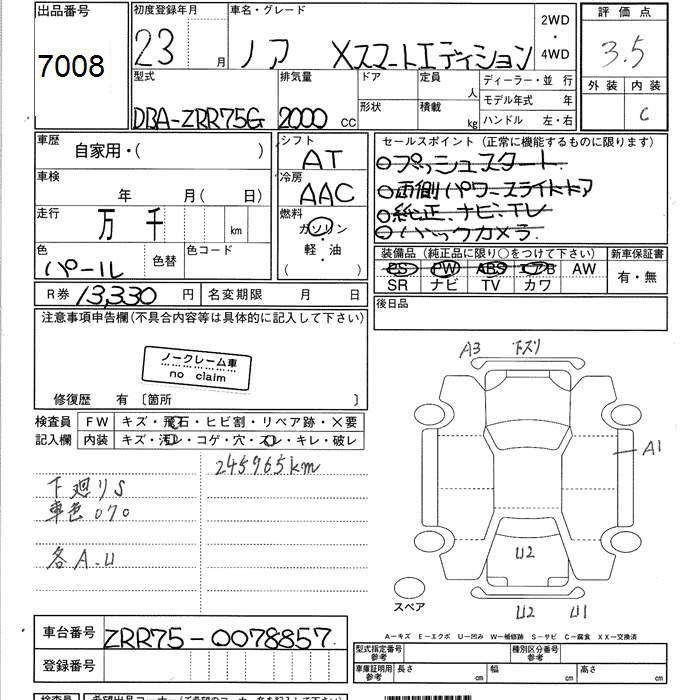 出品番号
7008
初度登録年月
23 月
車名・グレード
ノア Xスマートエディション
2WD
・
4WD
評価点
3.5
外装 内装
C
型式
DBA-ZRR75G
排気量
2000 cc
ドア
形状
定員
人
積載
kg
ディーラー・並行
モデル年式 年
ハンドル 左・右
車歴
自家用・( )
車検
年 月( 日)
走行
万 千 km
色
パール
色替
色コード
シフト
AT
冷房
AAC
燃料
ガソリン
・
軽・油
( )
R券 13,330 円
名変期限 月 日
セールスポイント(正常に機能するものに限ります)
○プッシュスタート
○両側パワースライドドア
○純正ナビ.TV
○バックカメラ
装備品(純正品に限り○をつけて下さい)
PS PW ABS エアB AW
SR ナビ TV カワ
新車保証書
有・無
後日品
注意事項申告欄(不具合内容等は具体的に記入して下さい)
ノークレーム車
no claim
修復歴 有 〔箇所 〕
検査員
記入欄
FW キズ・飛石・ヒビ割・リペア跡・×要
内装 キズ・汚レ・コゲ・穴・スレ・キレ・破レ
245965km
下廻りS
車色070
各A.U
A3 下ズリ
A1
U2
U2 U1
スペア
A-キズ E-エクボ U-凹み W-補修跡 S-サビ C-腐食 XX-交換済
車台番号 ZRR75-0078857
登録番号
型式指定番号
参考
種別区分番号
参考
車庫証明用
参考
長さ cm 幅 cm 高さ cm
検査員